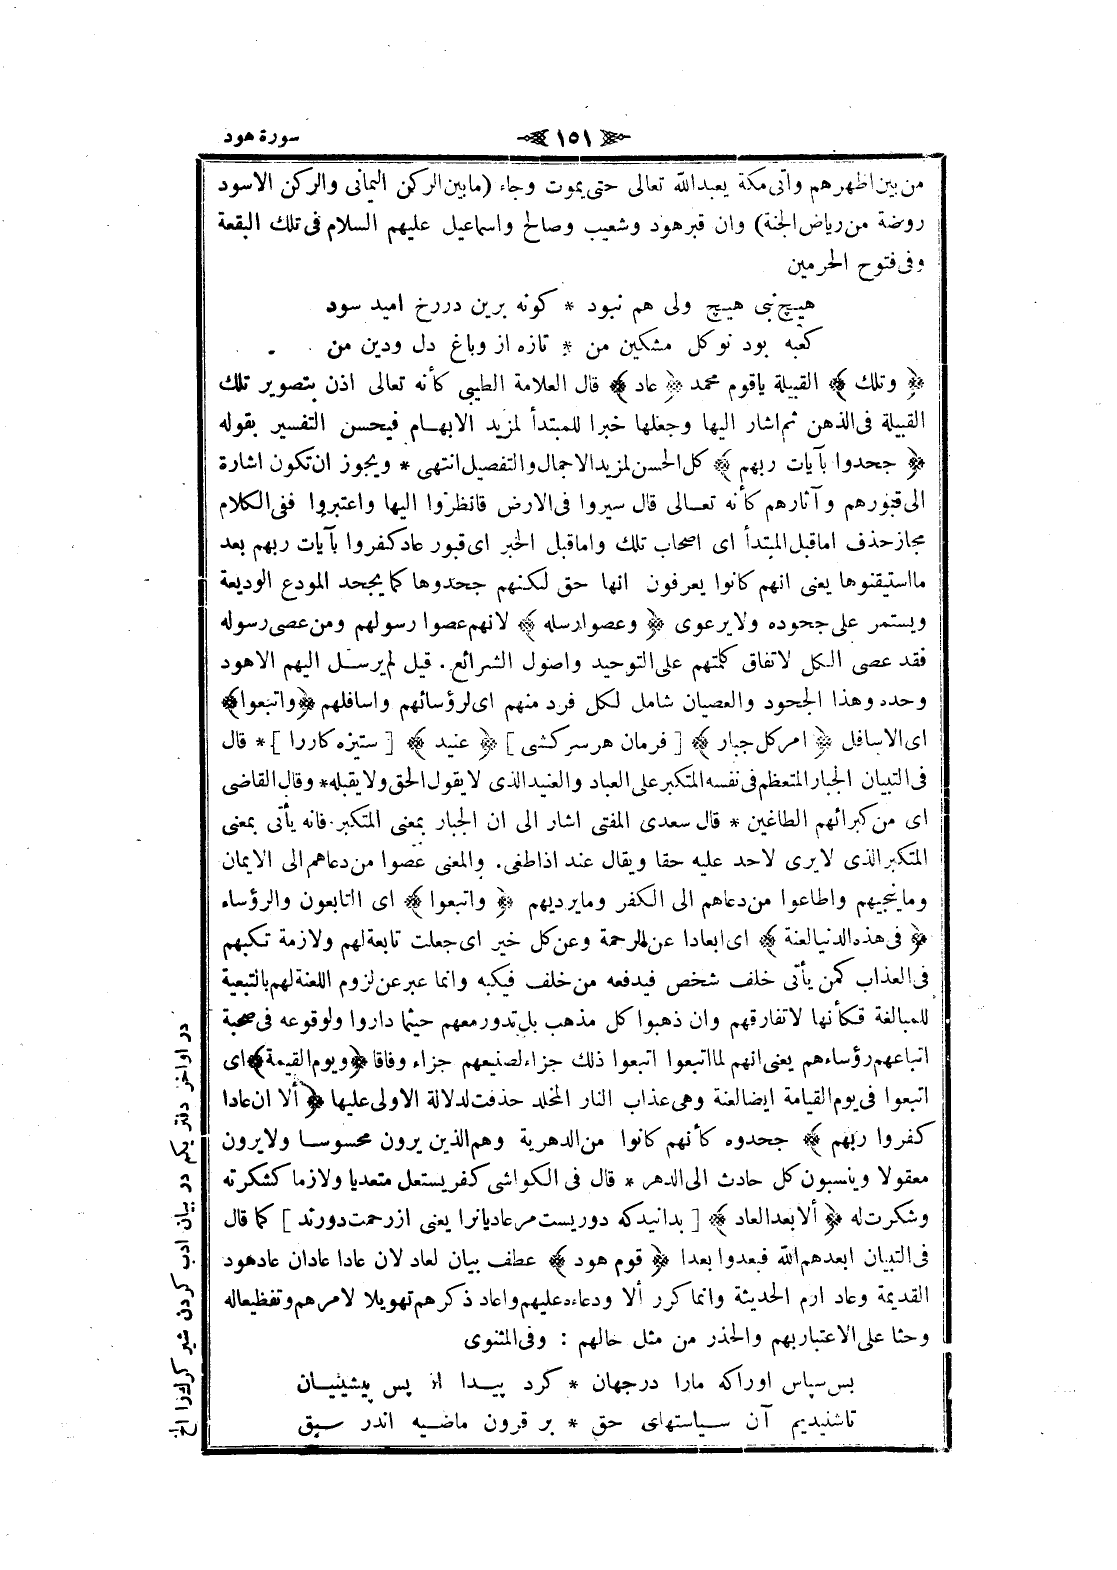 سورة هود
١٥١
من بين اظهرهم واتى مكة يعبدالله تعالى حتى يموت وجاء (مابين الركن اليمانى والركن الاسود
روضة من رياض الجنة) وان قبر هود وشعيب وصالح واسماعيل عليهم السلام فى تلك البقعة
وفى فتوح الحرمين
هيچ نبى هيچ ولى هم نبود * كونه برين دررخ اميد سود
كعبه بود نوكل مشكين من * تازه از وباغ دل ودين من
﴿ وتلك ﴾ القبيلة ياقوم محمد ﴿ عاد ﴾ قال العلامة الطيبى كأنه تعالى اذن بتصوير تلك
القبيلة فى الذهن ثم اشار اليها وجعلها خبرا للمبتدأ لمزيد الابهام فيحسن التفسير بقوله
﴿ جحدوا بآيات ربهم ﴾ كل الحسن لمزيد الاجمال والتفصيل انتهى * ويجوز ان تكون اشارة
الى قبورهم وآثارهم كأنه تعالى قال سيروا فى الارض فانظروا اليها واعتبروا ففى الكلام
مجاز حذف اماقبل المبتدأ اى اصحاب تلك واماقبل الخبر اى قبور عاد كفروا بآيات ربهم بعد
مااستيقنوها يعنى انهم كانوا يعرفون انها حق لكنهم جحدوها كما يجحد المودع الوديعة
ويستمر على جحوده ولايرعوى ﴿ وعصوارسله ﴾ لانهم عصوا رسولهم ومن عصى رسوله
فقد عصى الكل لاتفاق كلمتهم على التوحيد واصول الشرائع. قيل لم يرسل اليهم الاهود
وحده وهذا الجحود والعصيان شامل لكل فرد منهم اى لرؤسائهم واسافلهم ﴿ واتبعوا ﴾
اى الاسافل ﴿ امركل جبار ﴾ [ فرمان هر سركشى ] ﴿ عنيد ﴾ [ ستيزه كاررا ] * قال
فى التبيان الجبار المتعظم فى نفسه المتكبر على العباد والعنيد الذى لايقول الحق ولايقبله * وقال القاضى
اى من كبرائهم الطاغين * قال سعدى المفتى اشار الى ان الجبار بمعنى المتكبر فانه يأتى بمعنى
المتكبر الذى لايرى لاحد عليه حقا ويقال عند اذاطغى. والمعنى عصوا من دعاهم الى الايمان
وماينجيهم واطاعوا من دعاهم الى الكفر ومايرديهم ﴿ واتبعوا ﴾ اى التابعون والرؤساء
﴿ فى هذه الدنيا لعنة ﴾ اى ابعادا عن الرحمة وعن كل خير اى جعلت تابعة لهم ولازمة تكبهم
فى العذاب كمن يأتى خلف شخص فيدفعه من خلف فيكبه وانما عبر عن لزوم اللعنة لهم بالتبعية
للمبالغة فكأنها لاتفارقهم وان ذهبوا كل مذهب بل تدور معهم حيثما داروا ولوقوعه فى صحبة
اتباعهم رؤساءهم يعنى انهم لمااتبعوا اتبعوا ذلك جزاء لصنيعهم جزاء وفاقا ﴿ ويوم القيمة ﴾ اى
اتبعوا فى يوم القيامة ايضا لعنة وهى عذاب النار المخلد حذفت لدلالة الاولى عليها ﴿ ألا ان عادا
كفروا ربهم ﴾ جحدوه كأنهم كانوا من الدهرية وهم الذين يرون محسوسا ولايرون
معقولا وينسبون كل حادث الى الدهر * قال فى الكواشى كفر يستعمل متعديا ولازما كشكرته
وشكرت له ﴿ ألا بعد العاد ﴾ [ بدانيدكه دوريست مرعاديانرا يعنى از رحمت دورند ] كما قال
فى التبيان ابعدهم الله فبعدوا بعدا ﴿ قوم هود ﴾ عطف بيان لعاد لان عادا عادان عاد هود
القديمة وعاد ارم الحديثة وانما كرر ألا ودعاءه عليهم واعاد ذكرهم تهويلا لامرهم وتفظيعاله
وحثا على الاعتبار بهم والحذر من مثل حالهم : وفى المثنوى
پس سپاس اوراكه مارا درجهان * كرد پيدا از پس پيشينيان
تاشنيديم آن سياستهاى حق * بر قرون ماضيه اندر سبق
در اواخر دفتر يكم در بيان ادب كردن شير كرك را الخ